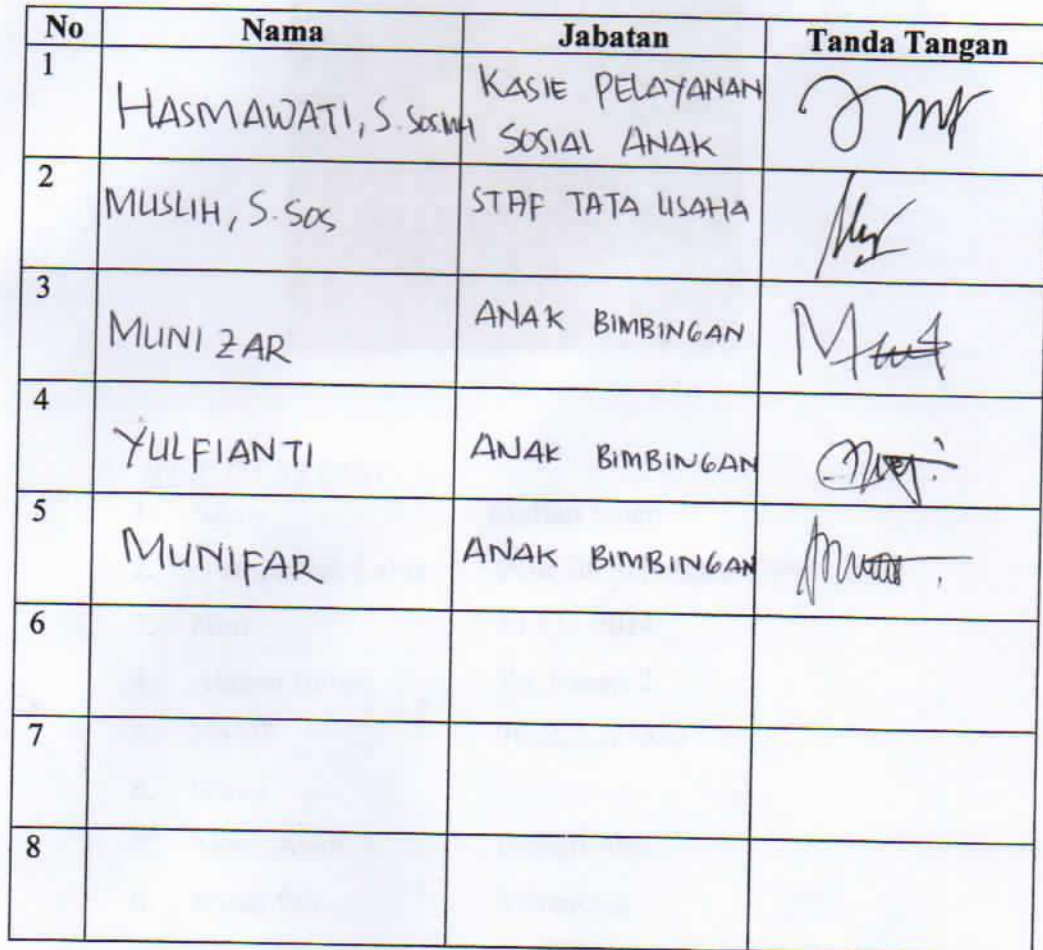 No Nama Jabatan Tanda Tangan
1 HASMAWATI, S. Sos.MH KASIE PELAYANAN
SOSIAL ANAK
2 MUSLIH, S. Sos STAF TATA USAHA
3 MUNIZAR ANAK BIMBINGAN
4 YULFIANTI ANAK BIMBINGAN
5 MUNIFAR ANAK BIMBINGAN
6
7
8